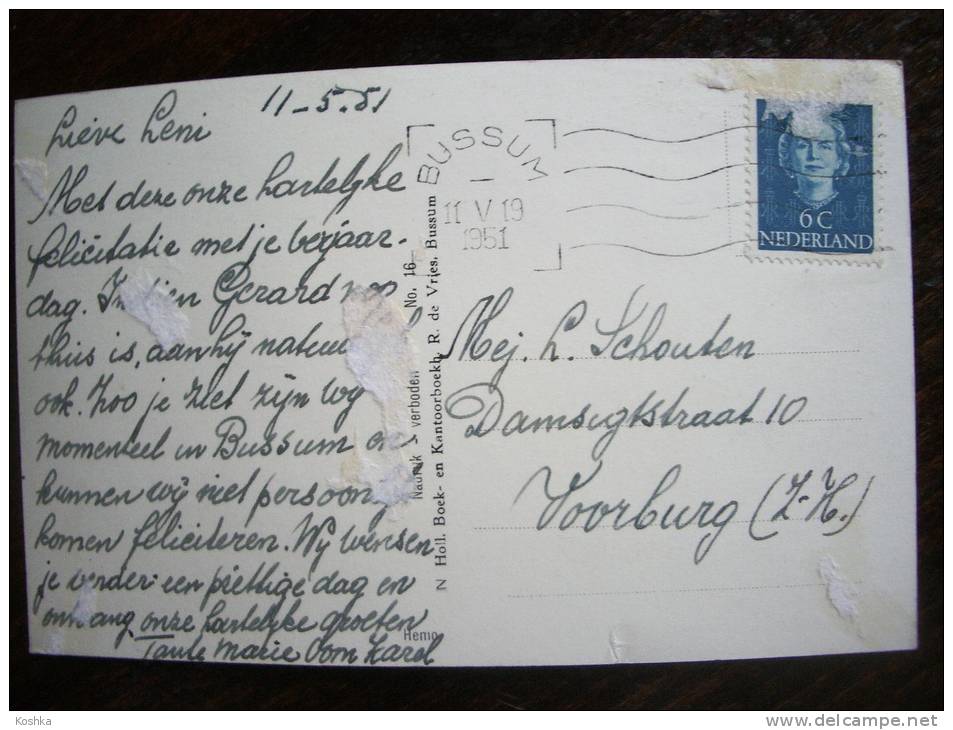 11-5.51
Lieve Leni
Met deze onze hartelyke
felicitatie met je verjaar-
dag. Gerard nog
thuis is, aan hij
ook. Zoo je ziet zijn wy
momenteel in Bussum en
kunnen wy niet
komen feliciteren. Wy wensen
je verder een prettige dag en
onze hartelyke groeten
Tante Marie Oom Karel
BUSSUM
11 V 19
1951
6 C
NEDERLAND
Mej. L. Schouten
Damsigtstraat 10
Voorburg (Z-H.)
N Holl. Boek- en Kantoorboekh. R. de Vries, Bussum
verboden No. 16
Hemo
Koshka
www.delcampe.net